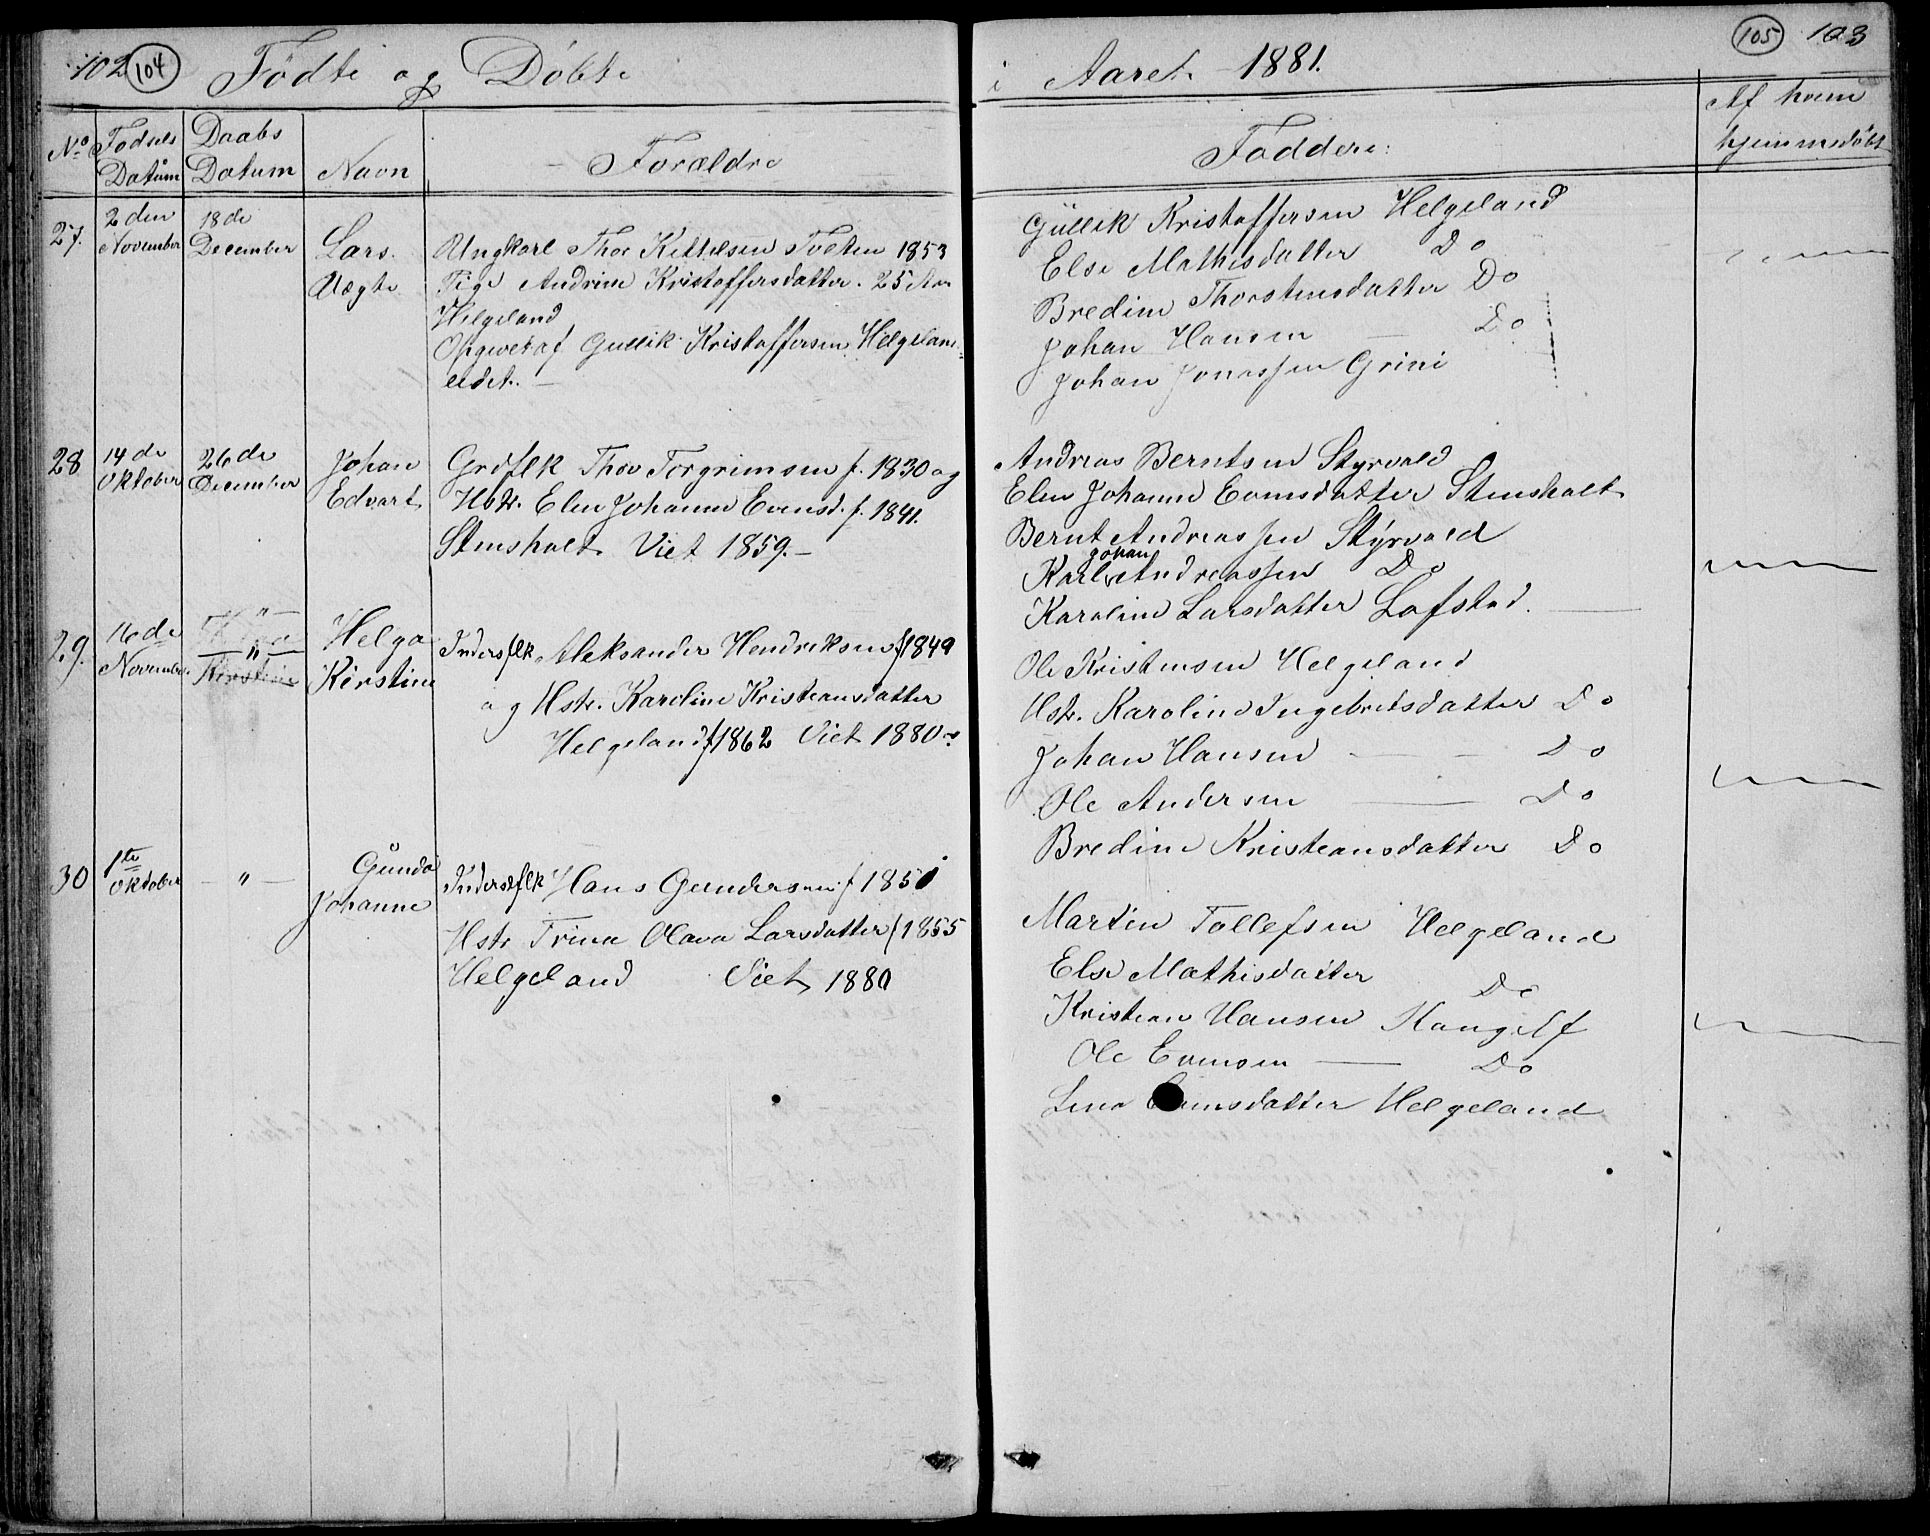 102 (104) Fødte og Døbte
No Fødsels Datum Daabs Datum Navn Forældre
27. 2den November 18de December Lars. Uægte
Ungkarl Thor Kittelsen Tveten 1853
Pige Andrine Kristoffersdatter. 25 Aar
Helgeland
Opgivet af Gullik Kristoffersen Helgelands-
eidet. —
28 14de Oktober 26de December Johan Edvart
Grdflk Thov Torgrimsen f. 1830 og
Hstr. Elen Johanne Evensd. f. 1841.
Stensholt Viet 1859. —
29. 16de November — " — Helga Kirstine
Inderstflk Aleksander Hendriksen f 1849
og Hstr. Karoline Kristiansdatter
Helgeland f 1862 Viet 1880
30 1te Oktober — " — Gunda Johanne
Inderstflk Hans Gundersen f 1851
Hstr Trine Olava Larsdatter f 1855
Helgeland Viet 1880
i Aaret 1881. (105) 103
Faddere: Af hvem
hjemmedøbt
Gullik Kristoffersen Helgeland
Else Mathisdatter Do
Bredine Thorstensdatter Do
Johan Hansen — Do
Johan Jonassen Grini
Andreas Berntsen Styrvold
Elen Johanne Evensdatter Stensholt
Bernt Andreassen Styrvold
Karl Johan Andreassen Do
Karoline Larsdatter Lofstad. —
Ole Kristensen Helgeland
Hstr. Karoline Ingebretsdatter Do
Johan Hansen — Do
Ole Andersen — Do
Bredine Kristiansdatter Do
Martin Tollefsen Helgeland
Else Mathisdatter Do
Kristian Hansen
Ole Evensen — Do
Lina Evensdatter Helgeland